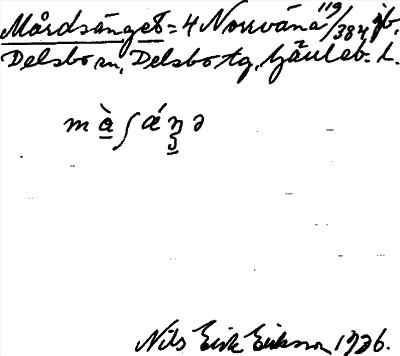 Mårdsänget = 4 Norrväna 119/384 jb.
Delsbo sn, Delsbo tg, Gävleb. l.
m à ʃ ǽ ŋ ə
Nils Erik Eriksson 1936.